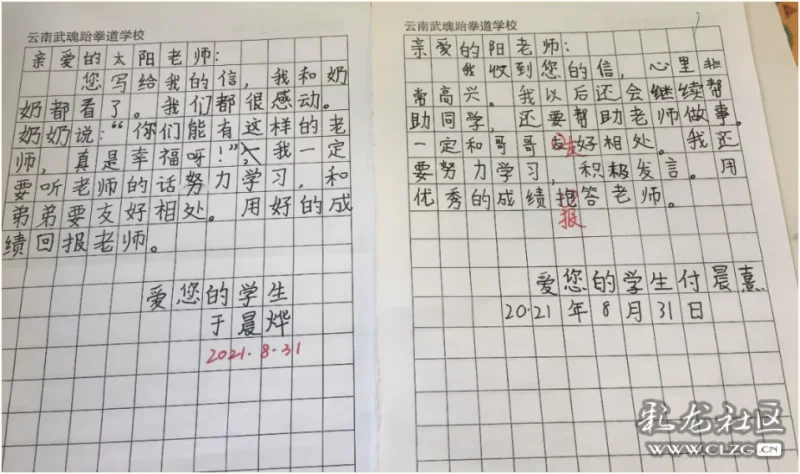 云南武魂跆拳道学校
亲爱的太阳老师：
您写给我的信，我和奶
奶都看了。我们都很感动。
奶奶说：“你们能有这样的老
师，真是幸福呀！”我一定
要听老师的话努力学习，和
弟弟要友好相处。用好的成
绩回报老师。
爱您的学生
于晨烨
2021.8.31
云南武魂跆拳道学校
亲爱的阳老师：
我收到您的信，心里非
常高兴。我以后还会继续帮
助同学，还要帮助老师做事。
一定和哥哥友好相处。我还
要努力学习，积极发言。用
优秀的成绩抱答老师。
报
爱您的学生付晨熹
2021年8月31日
彩龙社区
WWW.CLZG.CN